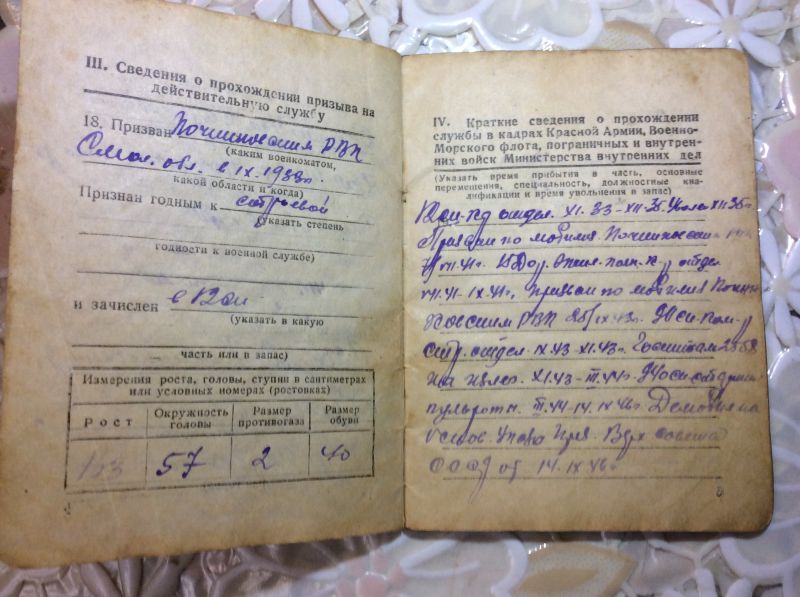 III. Сведения о прохождении призыва на
действительную службу
18. Призван Починковским РВК
(каким военкоматом,
Смол. обл. в IX.1933г.
какой области и когда)
Признан годным к строевой
(указать степень
годности к военной службе)
и зачислен в
(указать в какую
часть или в запас)
Измерения роста, головы, ступни в сантиметрах
или условных номерах (ростовках)
Рост
Окружность
головы
Размер
противогаза
Размер
обуви
57 2 40
4
IV. Краткие сведения о прохождении
службы в кадрах Красной Армии, Военно-
Морского флота, пограничных и внутрен-
них войск Министерства внутренних дел
(Указать время прибытия в часть, основные
перемещения, специальность, должностные ква-
лификации и время увольнения в запас)
отдел. XI.33-XII.35
Призван по мобилиз. Починковским
VII.41г. отдел
VII.41-IX.41г. Призван по мобилиз Почин
ковским РВК IX.43г.
стр. отдел. IX.43-XI.43г. Госпиталь
на излеч. XI.43-III.44г.
III.44-14.IX.46г. Демобил на
основ. Указа През. Верх совета
СССР от 14.IX.46г.